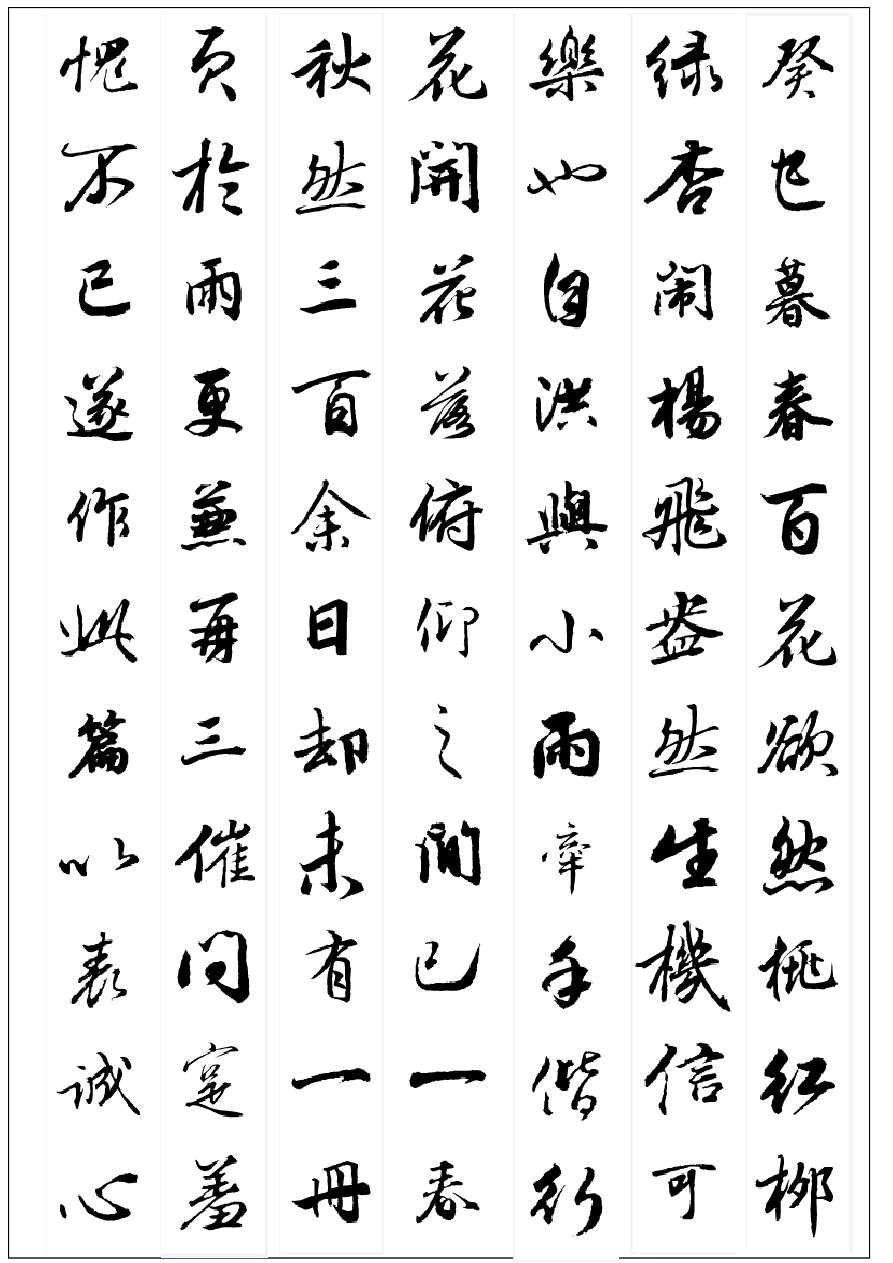 癸巳暮春百花欲然桃红柳
绿杏闹楊飛盎然生機信可
樂也自洪與小雨牽手偕行
花開花落俯仰之間已一春
秋然三百余日却未有一冊
頁於雨更兼再三催问寔羞
愧不已遂作此篇以表誠心